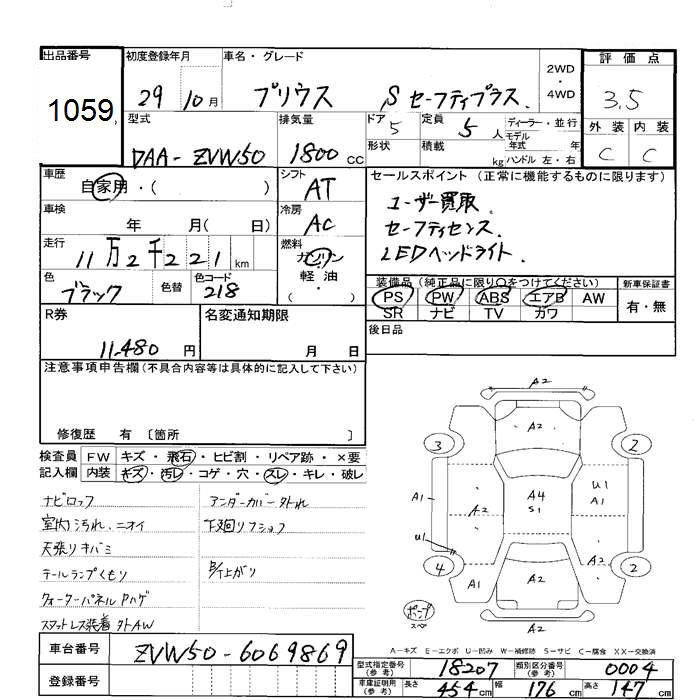 出品番号
1059
初度登録年月
29 10月
車名・グレード
プリウス S セーフティプラス
2WD
・
4WD
評価点
3.5
外装 内装
C C
型式
DAA-ZVW50
排気量
1800 CC
ドア 5
形状
定員 5 人
積載 kg
ディーラー・並行
モデル年式 年
ハンドル 左・右
車歴
自家用・( )
シフト
AT
セールスポイント (正常に機能するものに限ります)
ユーザー買取
セーフティセンス
LEDヘッドライト
車検
年 月( 日)
冷房
AC
走行
11万2千221km
燃料
ガソリン
・
軽油
( )
色
ブラック
色替
色コード
218
装備品(純正品に限り○をつけてください)
PS PW ABS エアB AW
SR ナビ TV カワ
新車保証書
有・無
R券
11,480 円
名変通知期限
月 日
後日品
注意事項申告欄(不具合内容等は具体的に記入して下さい)
修復歴 有 〔箇所 〕
検査員記入欄
FW キズ・飛石・ヒビ割・リペア跡・×要
内装 キズ・汚レ・コゲ・穴・スレ・キレ・破レ
ナビロック
アンダーカバー外れ
室内汚れ、ニオイ
下廻りフショク
天張リキバミ
テールランプくもり
クォーターパネルPハゲ
スタットレス装着 外AW
A2
A2
3
2
A1
A2
A4
S1
U1
A1
U1
4
A1
A2
A2
2
A2
A-キズ E-エクボ U-凹み W-補修跡 S-サビ C-腐食 XX-交換済
車台番号
ZVW50-6069869
登録番号
型式指定番号(参考)
18207
類別区分番号(参考)
0004
車庫証明用(参考)
長さ 454 cm
幅 176 cm
高さ 147 cm